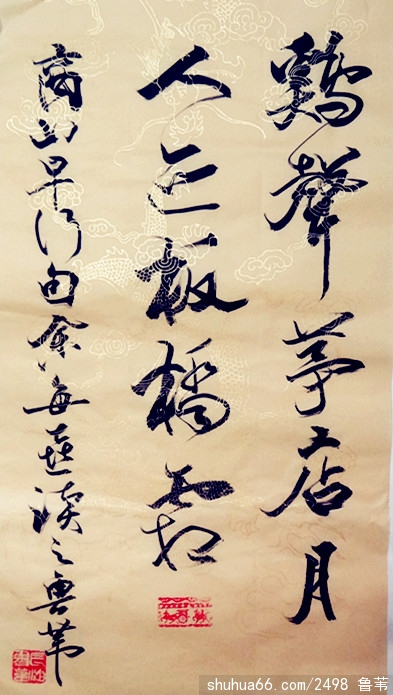 鷄聲茅店月
人迹板橋霜
商山早行句余每喜读之鲁苇
shuhua66.com/2498 鲁苇